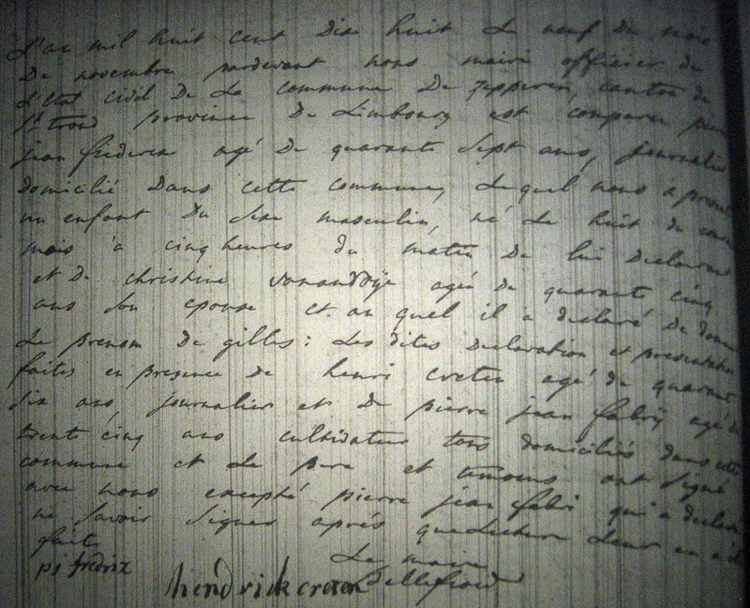 L'an mil huit cent dix huit le neuf du mois
De novembre pardevant nous maire officier de
L'etat civil De La commune De Zepperen, canton de
St trond province De Limbourg est comparu
jean frederix agé De quarante sept ans, journalier
Domicilié Dans cette commune, Lequel nous à
un enfant Du sexe masculin, né Le huit du
mois à cinq heures du matin De lui Declarant
et De christine agée De quarante cinq
ans Son epouse et au quel il a declaré De
Le prenom De gilles: Les dites Declaration et presentation
faites en presence De henri creten agé de quarante
six ans, journalier et De pierre jean fabry agé de
trente cinq ans cultivateur tous domiciliés dans
commune et Le pere et temoins ont signé
avec nous excepté pierre jean fabri qui a declaré
ne savoir signer aprés que Lecture Leur en a été
faite
Le maire
pj fredrix hendrick creten Bellefroid